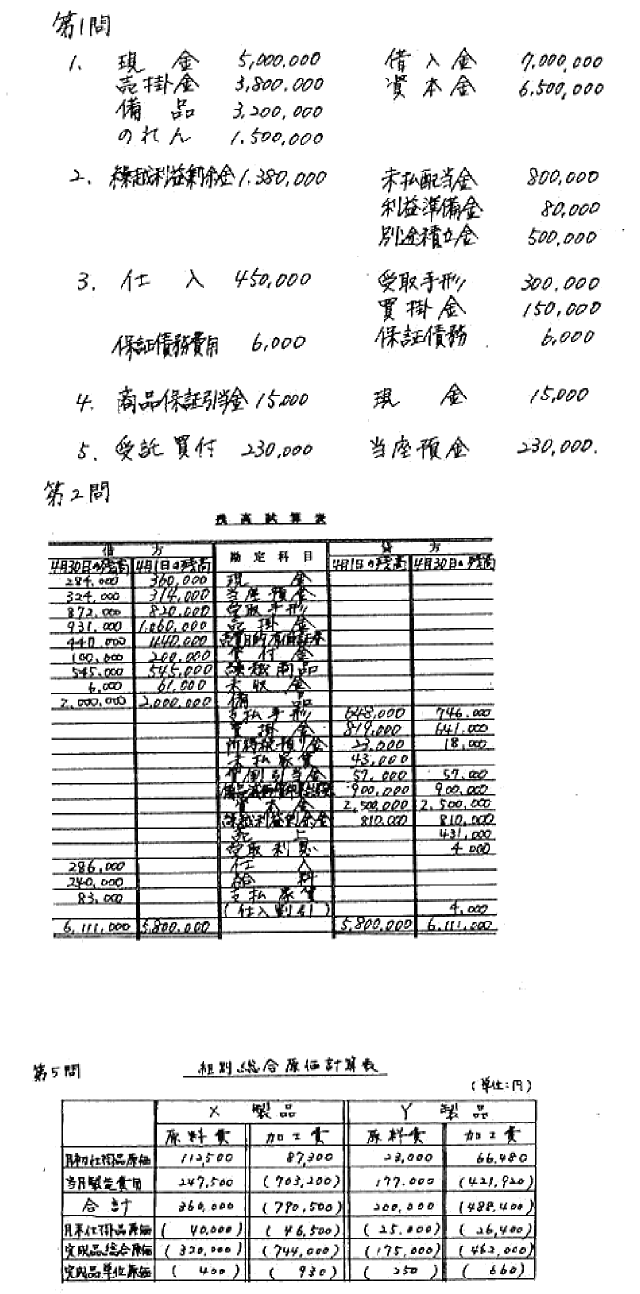 第1問
1. 現金 5,000,000 借入金 7,000,000
売掛金 3,800,000 資本金 6,500,000
備品 3,200,000
のれん 1,500,000
2. 繰越利益剰余金 1,380,000 未払配当金 800,000
利益準備金 80,000
別途積立金 500,000
3. 仕入 450,000 受取手形 300,000
買掛金 150,000
保証債務費用 6,000 保証債務 6,000
4. 商品保証引当金 15,000 現金 15,000
5. 受託買付 230,000 当座預金 230,000.
第2問
残高試算表
借方 勘定科目 貸方
4月30日の残高 4月1日の残高 4月1日の残高 4月30日の残高
284,000 360,000 現金
324,000 314,000 当座預金
872,000 820,000 受取手形
931,000 1,060,000 売掛金
440,000 440,000
100,000 200,000 貸付金
545,000 545,000 繰越商品
6,000 61,000 未収金
2,000,000 2,000,000 備品
支払手形 648,000 746,000
買掛金 819,000 641,000
所得税預り金 23,000 18,000
未払家賃 43,000
貸倒引当金 57,000 57,000
900,000 900,000
資本金 2,500,000 2,500,000
繰越利益剰余金 810,000 810,000
売上 431,000
受取利息 4,000
286,000 仕入
240,000 給料
83,000 支払家賃
(仕入割引) 4,000
6,111,000 5,800,000 5,800,000 6,111,000
第5問 組別総合原価計算表
(単位:円)
X製品 Y製品
原料費 加工費 原料費 加工費
月初仕掛品原価 112,500 87,300 23,000 66,480
当月製造費用 247,500 (703,200) 177,000 (421,920)
合計 360,000 (790,500) 200,000 (488,400)
月末仕掛品原価 (40,000) (46,500) (25,000) (26,400)
完成品総合原価 (320,000) (744,000) (175,000) (462,000)
完成品単位原価 (400) (930) (250) (660)